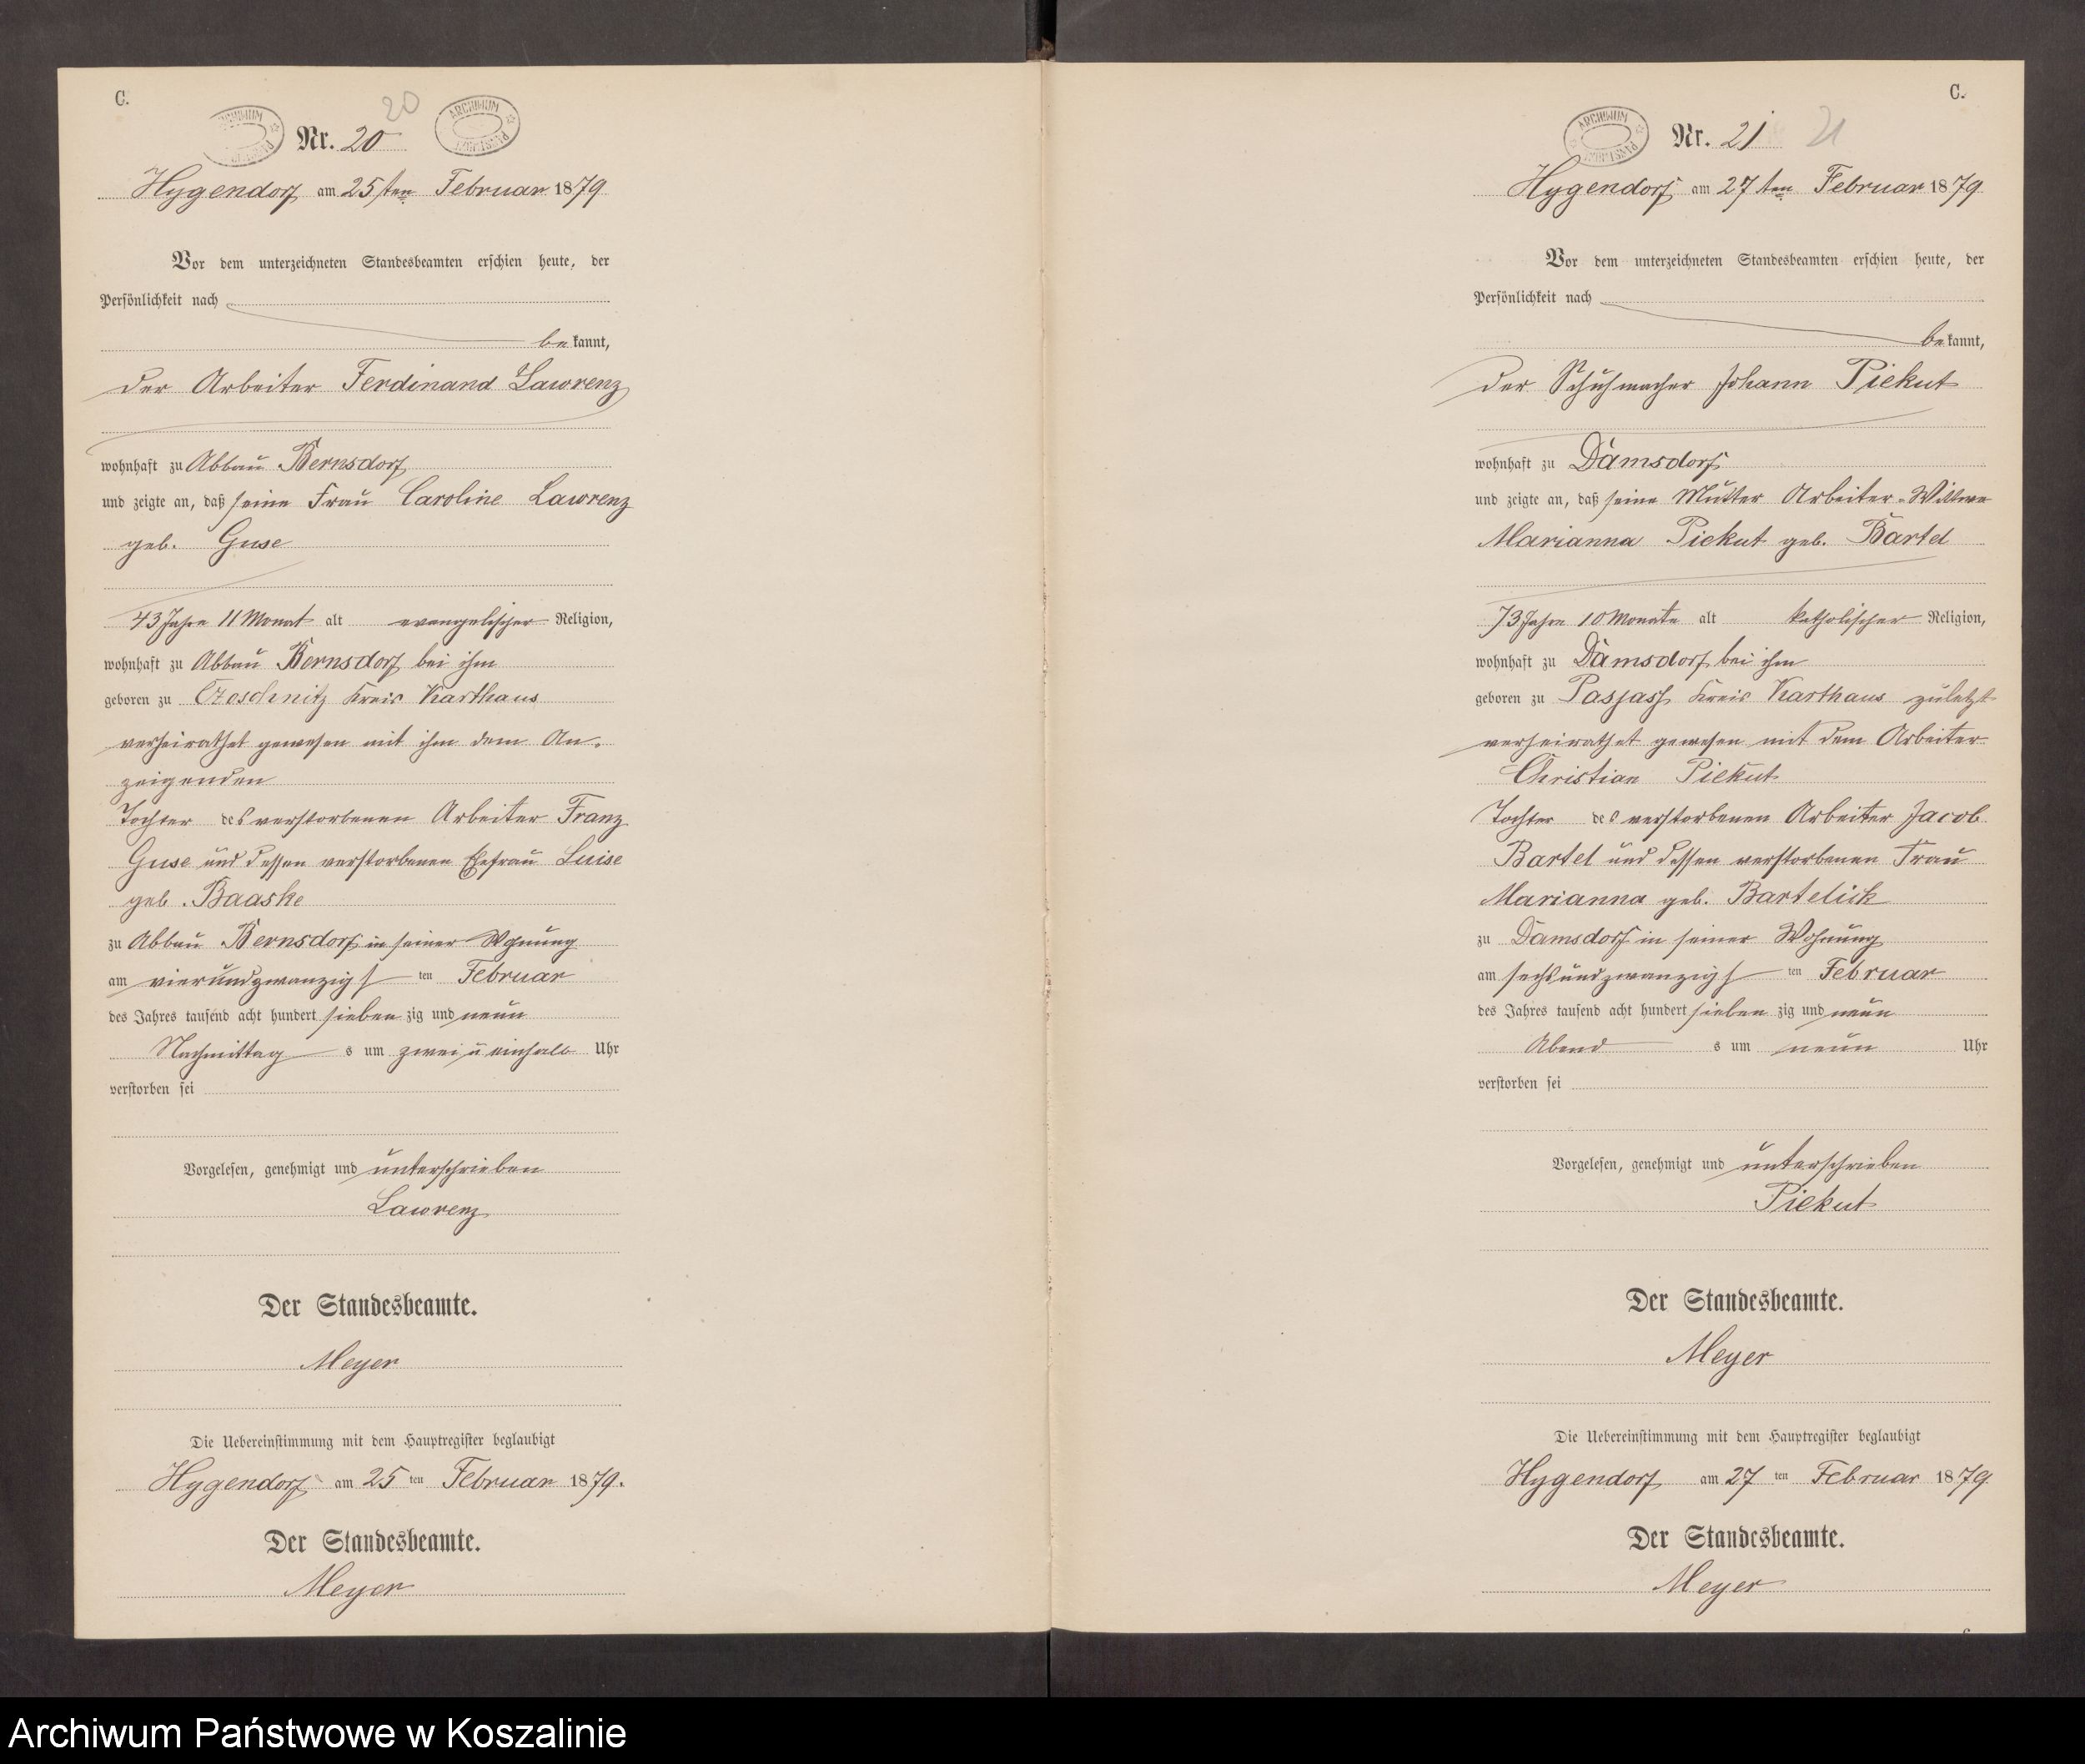 C.
20
ARCHIWUM
ARCHIWUM PAŃSTWOWE
Nr. 20
Hygendorf am 25ten Februar 1879
Vor dem unterzeichneten Standesbeamten erschien heute, der
Persönlichkeit nach
bekannt,
der Arbeiter Ferdinand Lawrenz
wohnhaft zu Abbau Bernsdorf
und zeigte an, daß seine Frau Caroline Lawrenz
geb. Guse
43 Jahre 11 Monat alt evangelischer Religion,
wohnhaft zu Abbau Bernsdorf bei ihm
geboren zu Czeschnitz Kreis Karthaus
verheirathet gewesen mit ihm dem An-
zeigenden
Tochter des verstorbenen Arbeiter Franz
Guse und dessen verstorbenen Ehefrau Luise
geb. Baaske
zu Abbau Bernsdorf in seiner Wohnung
am vierundzwanzigsten Februar
des Jahres tausend acht hundert siebenzig und neun
Nachmittags um zwei u einhalb Uhr
verstorben sei
Vorgelesen, genehmigt und unterschrieben
Lawrenz
Der Standesbeamte.
Meyer
Die Uebereinstimmung mit dem Hauptregister beglaubigt
Hygendorf am 25ten Februar 1879.
Der Standesbeamte.
Meyer
C.
ARCHIWUM PAŃSTWOWE
Nr. 21 21
Hygendorf am 27ten Februar 1879
Vor dem unterzeichneten Standesbeamten erschien heute, der
Persönlichkeit nach
bekannt,
der Schuhmacher Johann Piekut
wohnhaft zu Damsdorf
und zeigte an, daß seine Mutter Arbeiter-Wittwe
Marianna Piekut geb. Bartel
73 Jahre 10 Monate alt katholischer Religion,
wohnhaft zu Damsdorf bei ihm
geboren zu Kreis Karthaus zuletzt
verheirathet gewesen mit dem Arbeiter
Christian Piekut
Tochter des verstorbenen Arbeiter Jacob
Bartel und dessen verstorbenen Frau
Marianna geb. Bartelick
zu Damsdorf in seiner Wohnung
am sechsundzwanzigsten Februar
des Jahres tausend acht hundert siebenzig und neun
Abends um neun Uhr
verstorben sei
Vorgelesen, genehmigt und unterschrieben
Piekut
Der Standesbeamte.
Meyer
Die Uebereinstimmung mit dem Hauptregister beglaubigt
Hygendorf am 27ten Februar 1879
Der Standesbeamte.
Meyer
Archiwum Państwowe w Koszalinie